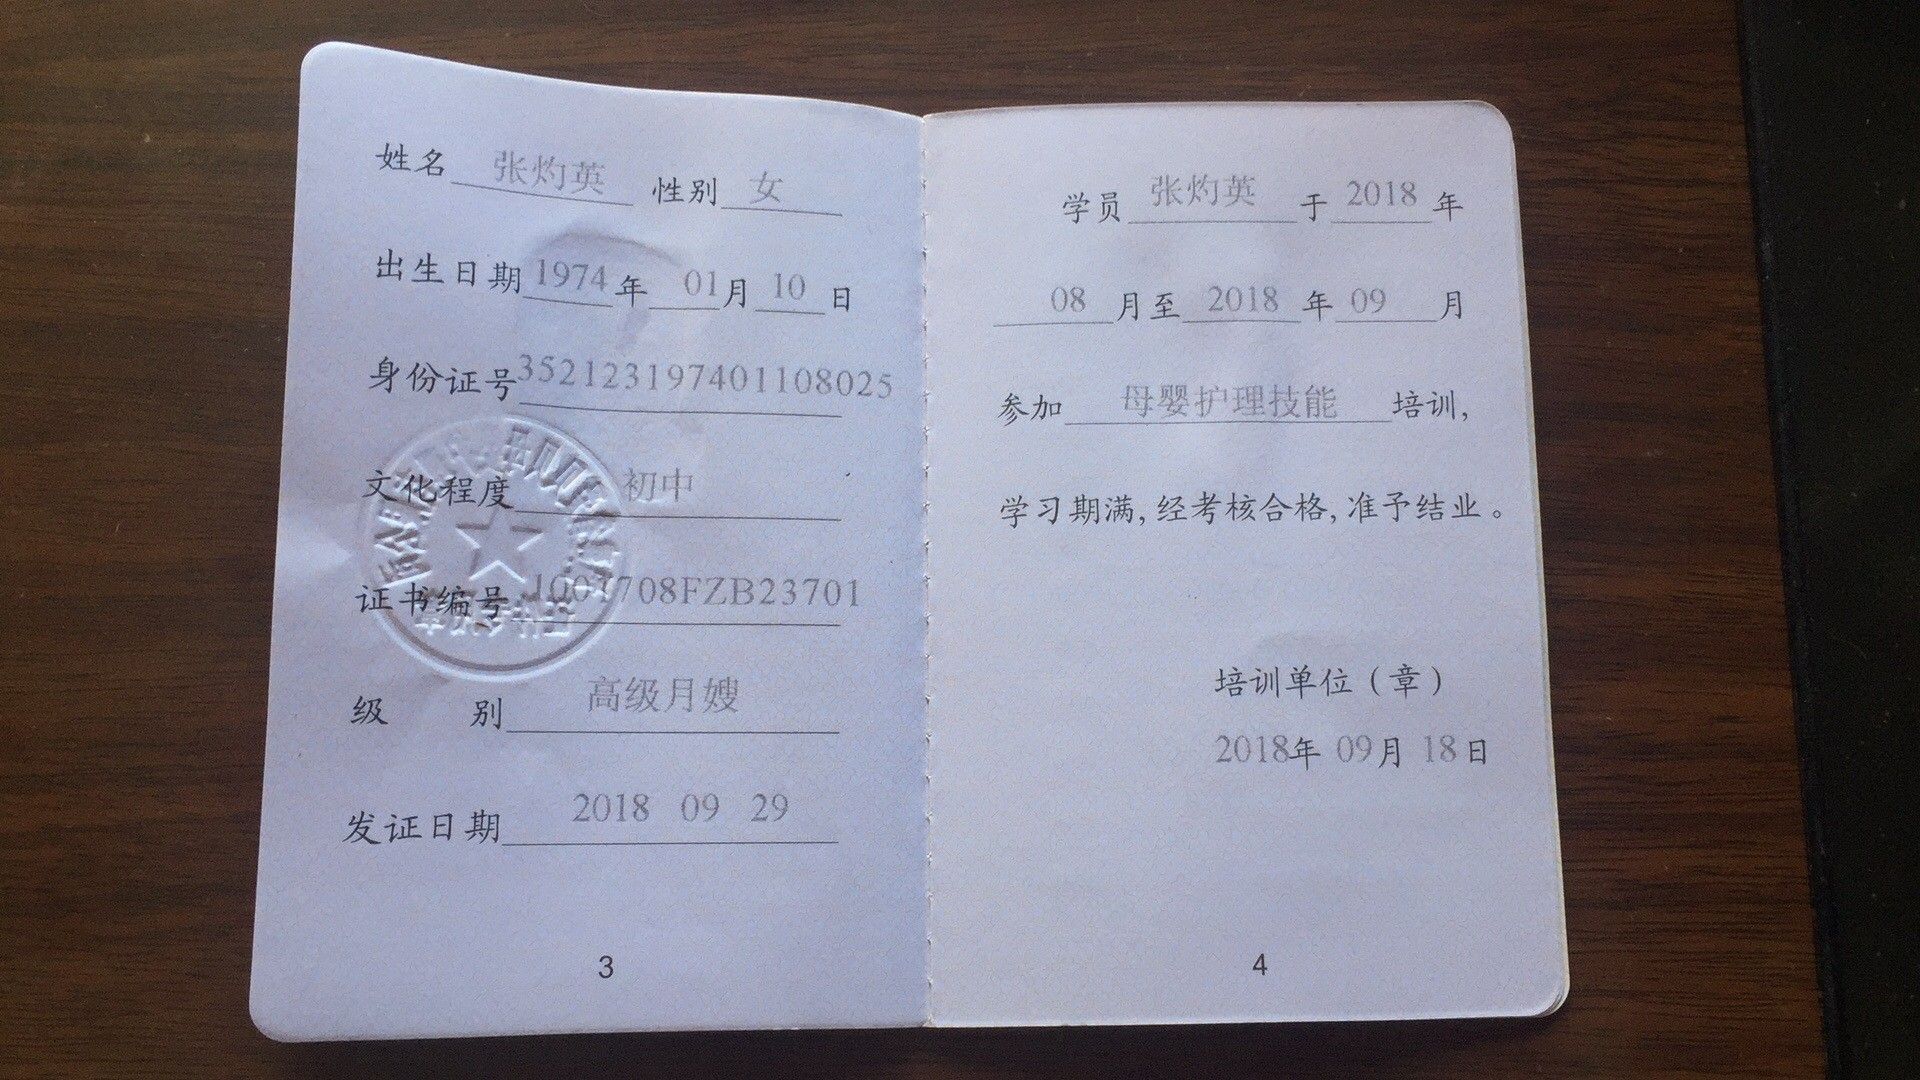 姓名 张灼英 性别 女
出生日期 1974 年 01 月 10 日
身份证号 352123197401108025
文化程度 初中
证书编号 1001708FZB23701
级 别 高级月嫂
发证日期 2018 09 29
3
学员 张灼英 于 2018 年
08 月至 2018 年 09 月
参加 母婴护理技能 培训,
学习期满,经考核合格,准予结业。
培训单位(章)
2018年 09月 18日
4